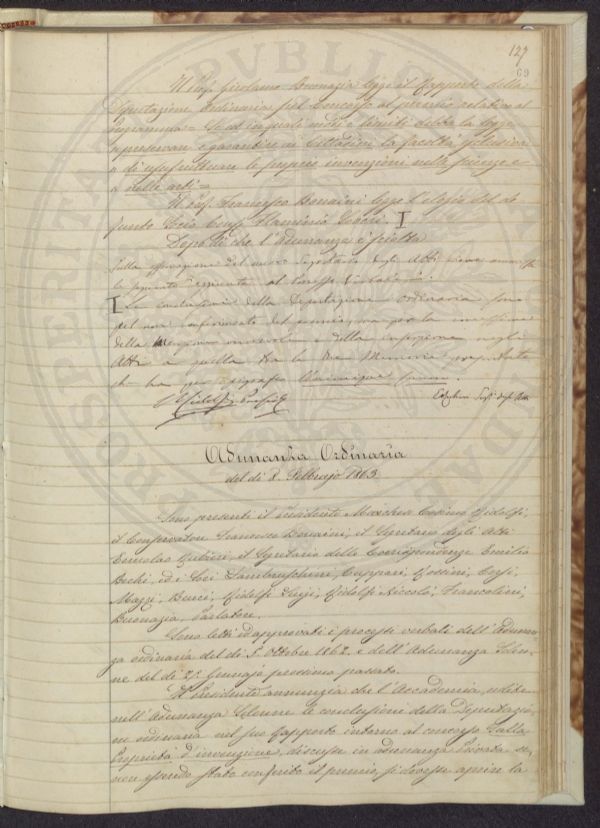 127
69
Il Prof. Girolamo Buonazia legge il Rapporto della
Deputazione Ordinaria pel Concorso al premio relativo al
Programma = Se ed in quali modi e limiti debba la legge
e garantire ai Cittadini la facoltà esclusiva
di usufruttuare le proprie invenzioni nelle scienze e
nelle arti =
Il Prof. Francesco Bonaini legge l'elogio del de
funto Socio Flaminio Severi. I
Dopo di che l'Adunanza è sciolta
Sulla del nuovo Segretario degli Atti
la seguente aggiunta al
I Le conclusioni della Deputazione ordinaria sono
pel non conferimento del premio, ma per la
della menzione onorevole e della inserzione negli
Atti a quella tra le tre Memorie presentate
che ha per epigrafe
Adunanza Ordinaria
del dì 8 Febbrajo 1863
Sono presenti il Presidente Marchese Cosimo Ridolfi,
il Conservatore Francesco Bonaini, il Segretario degli Atti
Ermolao Rubieri, il Segretario delle Corrispondenze Emilio
Bechi, ed i Soci Lambruschini, Cuppari, Rossini, Corsi,
Mazzi, Burci, Ridolfi Luigi, Ridolfi Niccolò, Francolini,
Buonazia, Parlatore.
Sono letti ed approvati i processi verbali dell'Adunan
za ordinaria del dì 5 Ottobre 1862 e dell'Adunanza Solen
ne del dì 25 Gennajo prossimo passato.
Il Presidente annunzia che l'Accademia, udite
nell'Adunanza Solenne le conclusioni della Deputazio
ne ordinaria nel suo Rapporto intorno al concorso sulla
Proprietà d'invenzione, discusse in adunanza Privata se,
non essendo stato conferito il premio, si dovesse aprire la